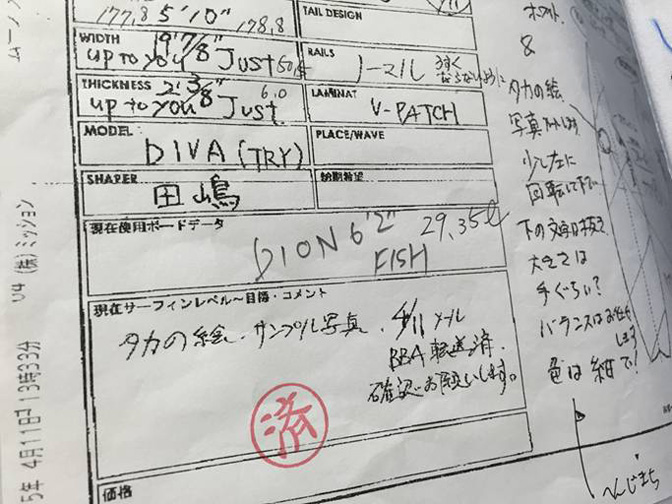 177,8 5'10" 178,8
TAIL DESIGN
WIDTH
19 7/8"
up to you Just 50,5
RAILS
ノーマル うすくならないように
THICKNESS 2 3/8"
up to you Just 6.0
LAMINAT
V-PATCH
MODEL
DIVA (TRY)
PLACE/WAVE
SHAPER
田嶋
納期希望
現在使用ボードデータ
DION 6'2" 29,35ℓ
FISH
現在サーフィンレベル〜目標・コメント
タカの絵・サンプル写真、4/11メール
BBA転送済.
確認お願いします。
済
価格
&
タカの絵
写真
少し左に
回転して下さい
下の文字は抜き
大きさは
手ぐらい?
バランスはお任せ
します
色は紺で!
5年 4月11日 13時33分 U4 (株)ミッション